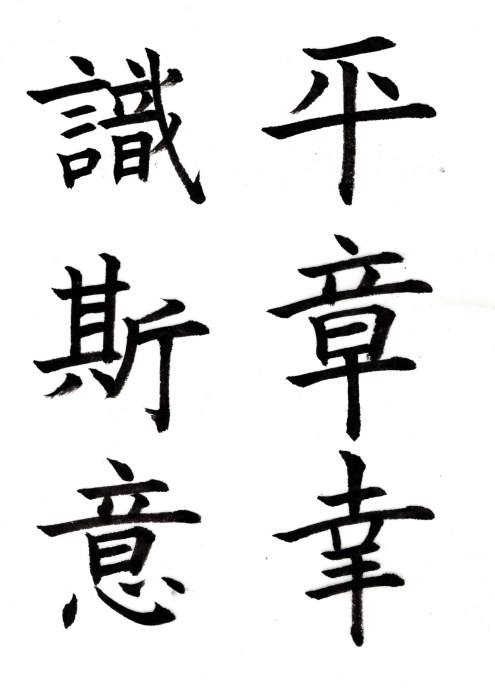 平章幸
識斯意